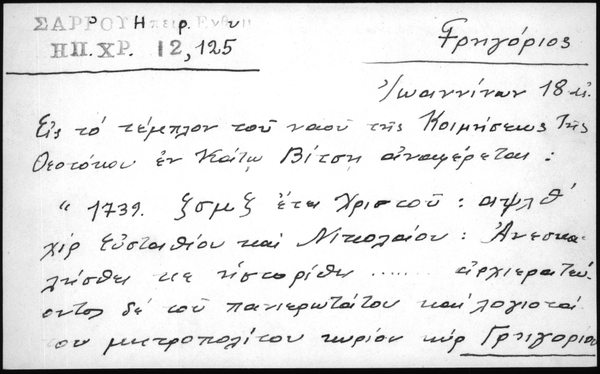 ΣΑΡΡΟΥ Ἠπειρ.
ΗΠ.ΧΡ. 12,125
Γρηγόριος
Ἰωαννίνων 18 αἰ.
Εἰς τό τέμπλον τοῦ ναοῦ τῆς Κοιμήσεως τῆς
Θεοτόκου ἐν Κάτω Βίτσῃ ἀναφέρεται :
“ 1739. ζσμζ ἔτει Χριστοῦ : αψλθ΄
χίρ Εὐσταθίου καί Νικολαίου : Ἀνεσκα-
λήσθει κε ἡστορίθη ...... ἀρχιερατεύ-
οντος δέ τοῦ πανιερωτάτου καί λογιοτά
ου μητροπολίτου κυρίου κύρ Γρηγορίου